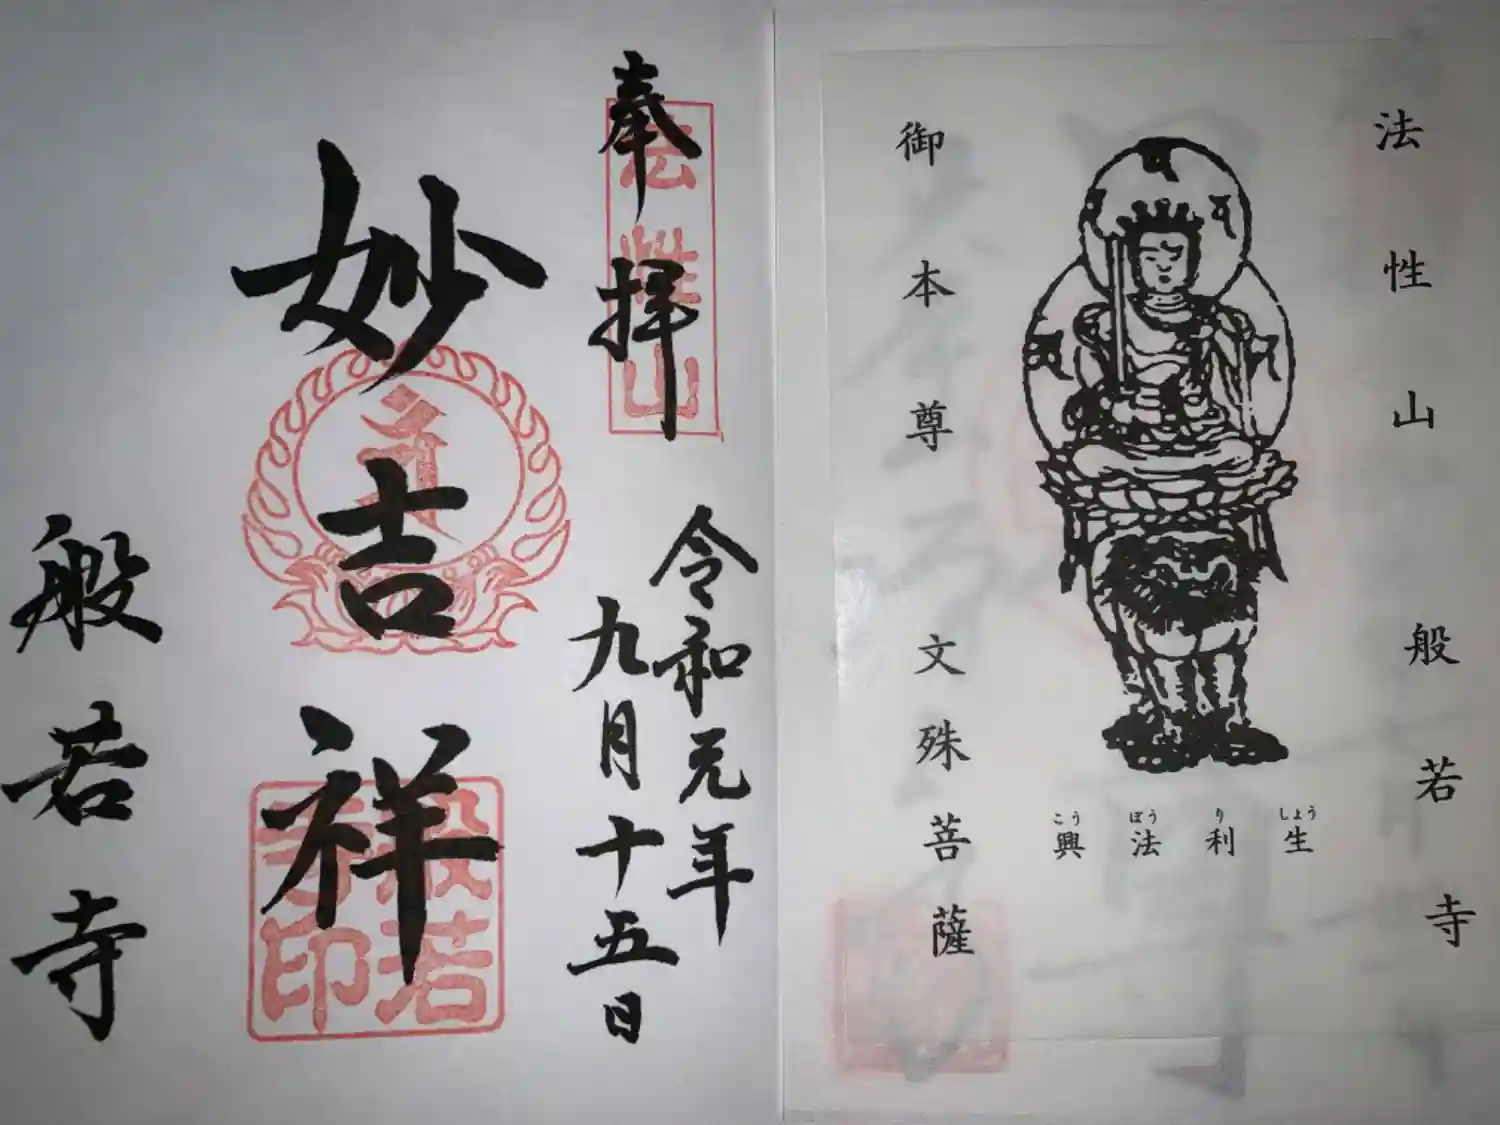 法性山 般若寺
生利法興
しょうりぽうこう
御本尊 文殊菩薩
奉拝
法性山
令和元年
九月十五日
妙吉祥
般若寺印
般若寺